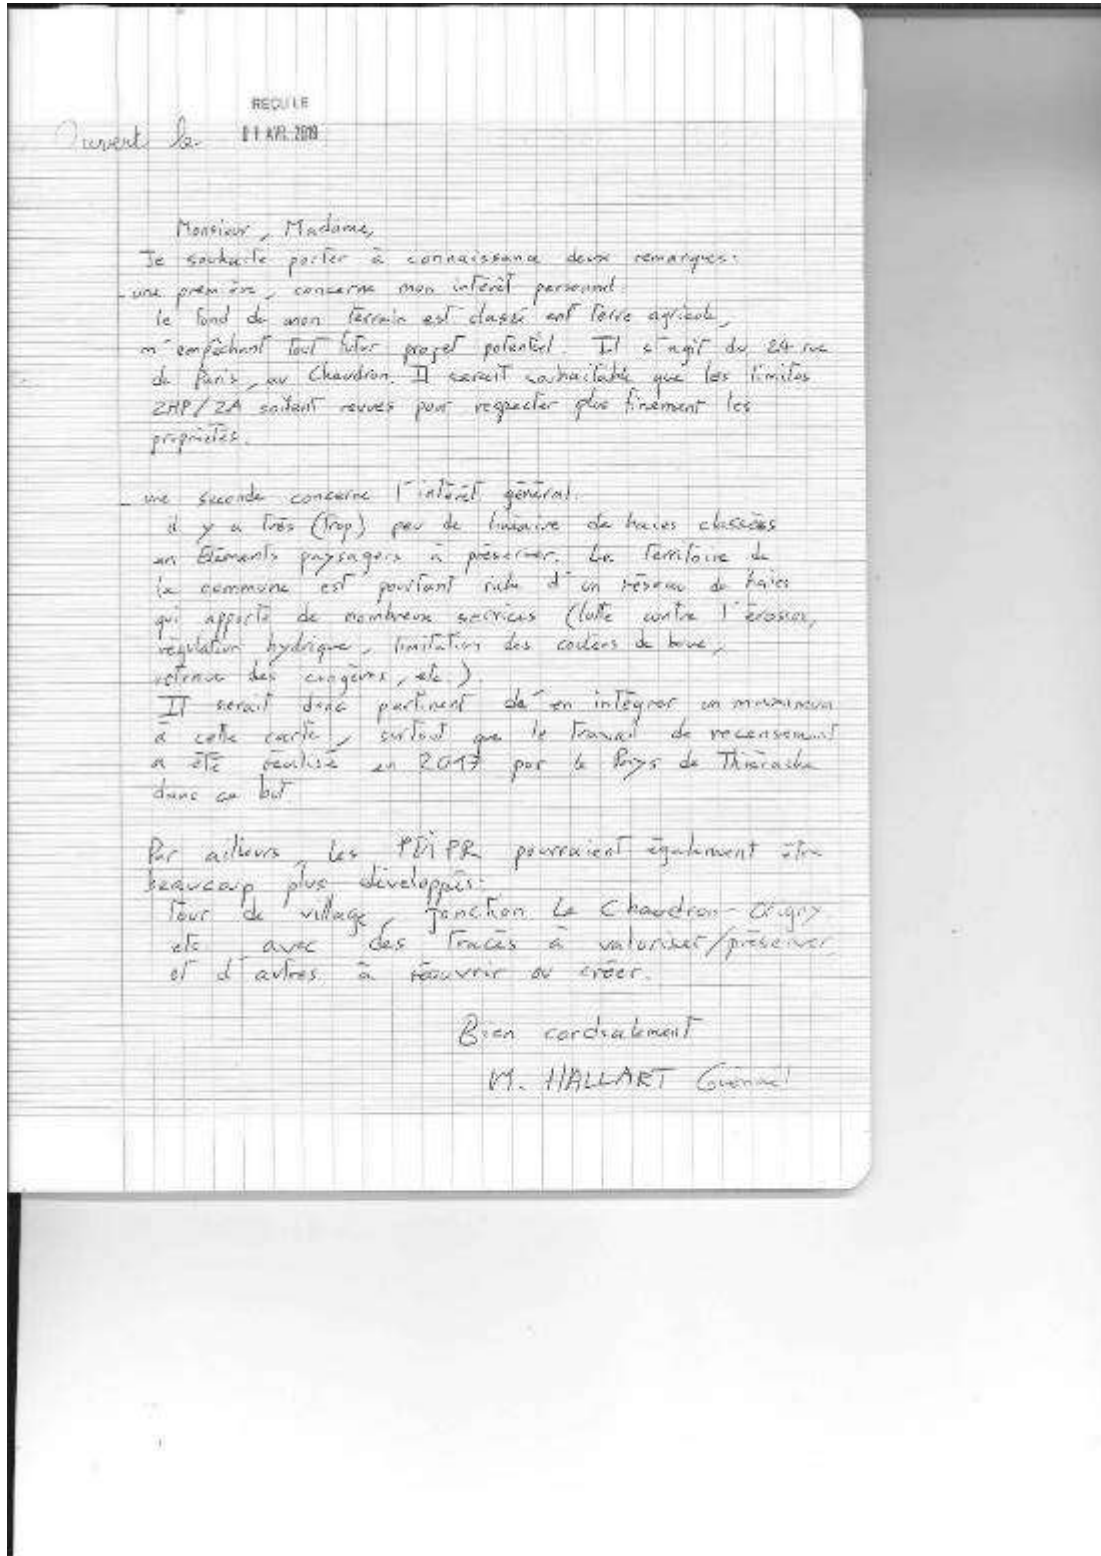 REÇU LE
Ouvert le 01 AVR. 2019
Monsieur, Madame,
Je souhaite porter à connaissance deux remarques:
- une première, concerne mon intérêt personnel.
le fond de mon terrain est classé ent terre agricole,
m'empêchant tout futur projet potentiel. Il s'agit du 24 rue
de Paris, au Chaudron. Il serait souhaitable que les limites
ZHP/ZA soitent revues pour respecter plus finement les
propriétés.
- une seconde concerne l'intérêt général.
il y a très (trop) peu de linéaire de haies classées
en Eléments paysagers à préserver. Le Territoire de
la commune est pourtant riche d'un réseau de haies
qui apporte de nombreux services (lutte contre l'érosion,
régulation hydrique, limitation des coulées de boue,
retenue des , etc.)
Il serait donc pertinent de en intégrer un maximum
à cette carte, surtout que le travail de recensement
a été réalisé en 2017 par le Pays de Thiérache
dans ce but.
Par ailleurs, les PDIPR pourraient également être
beaucoup plus développés:
Tour de village, jonction Le Chaudron - Origny
etc avec des tracés à valoriser/préserver
et d'autres à réouvrir ou créer.
Bien cordialement
M. HALLART